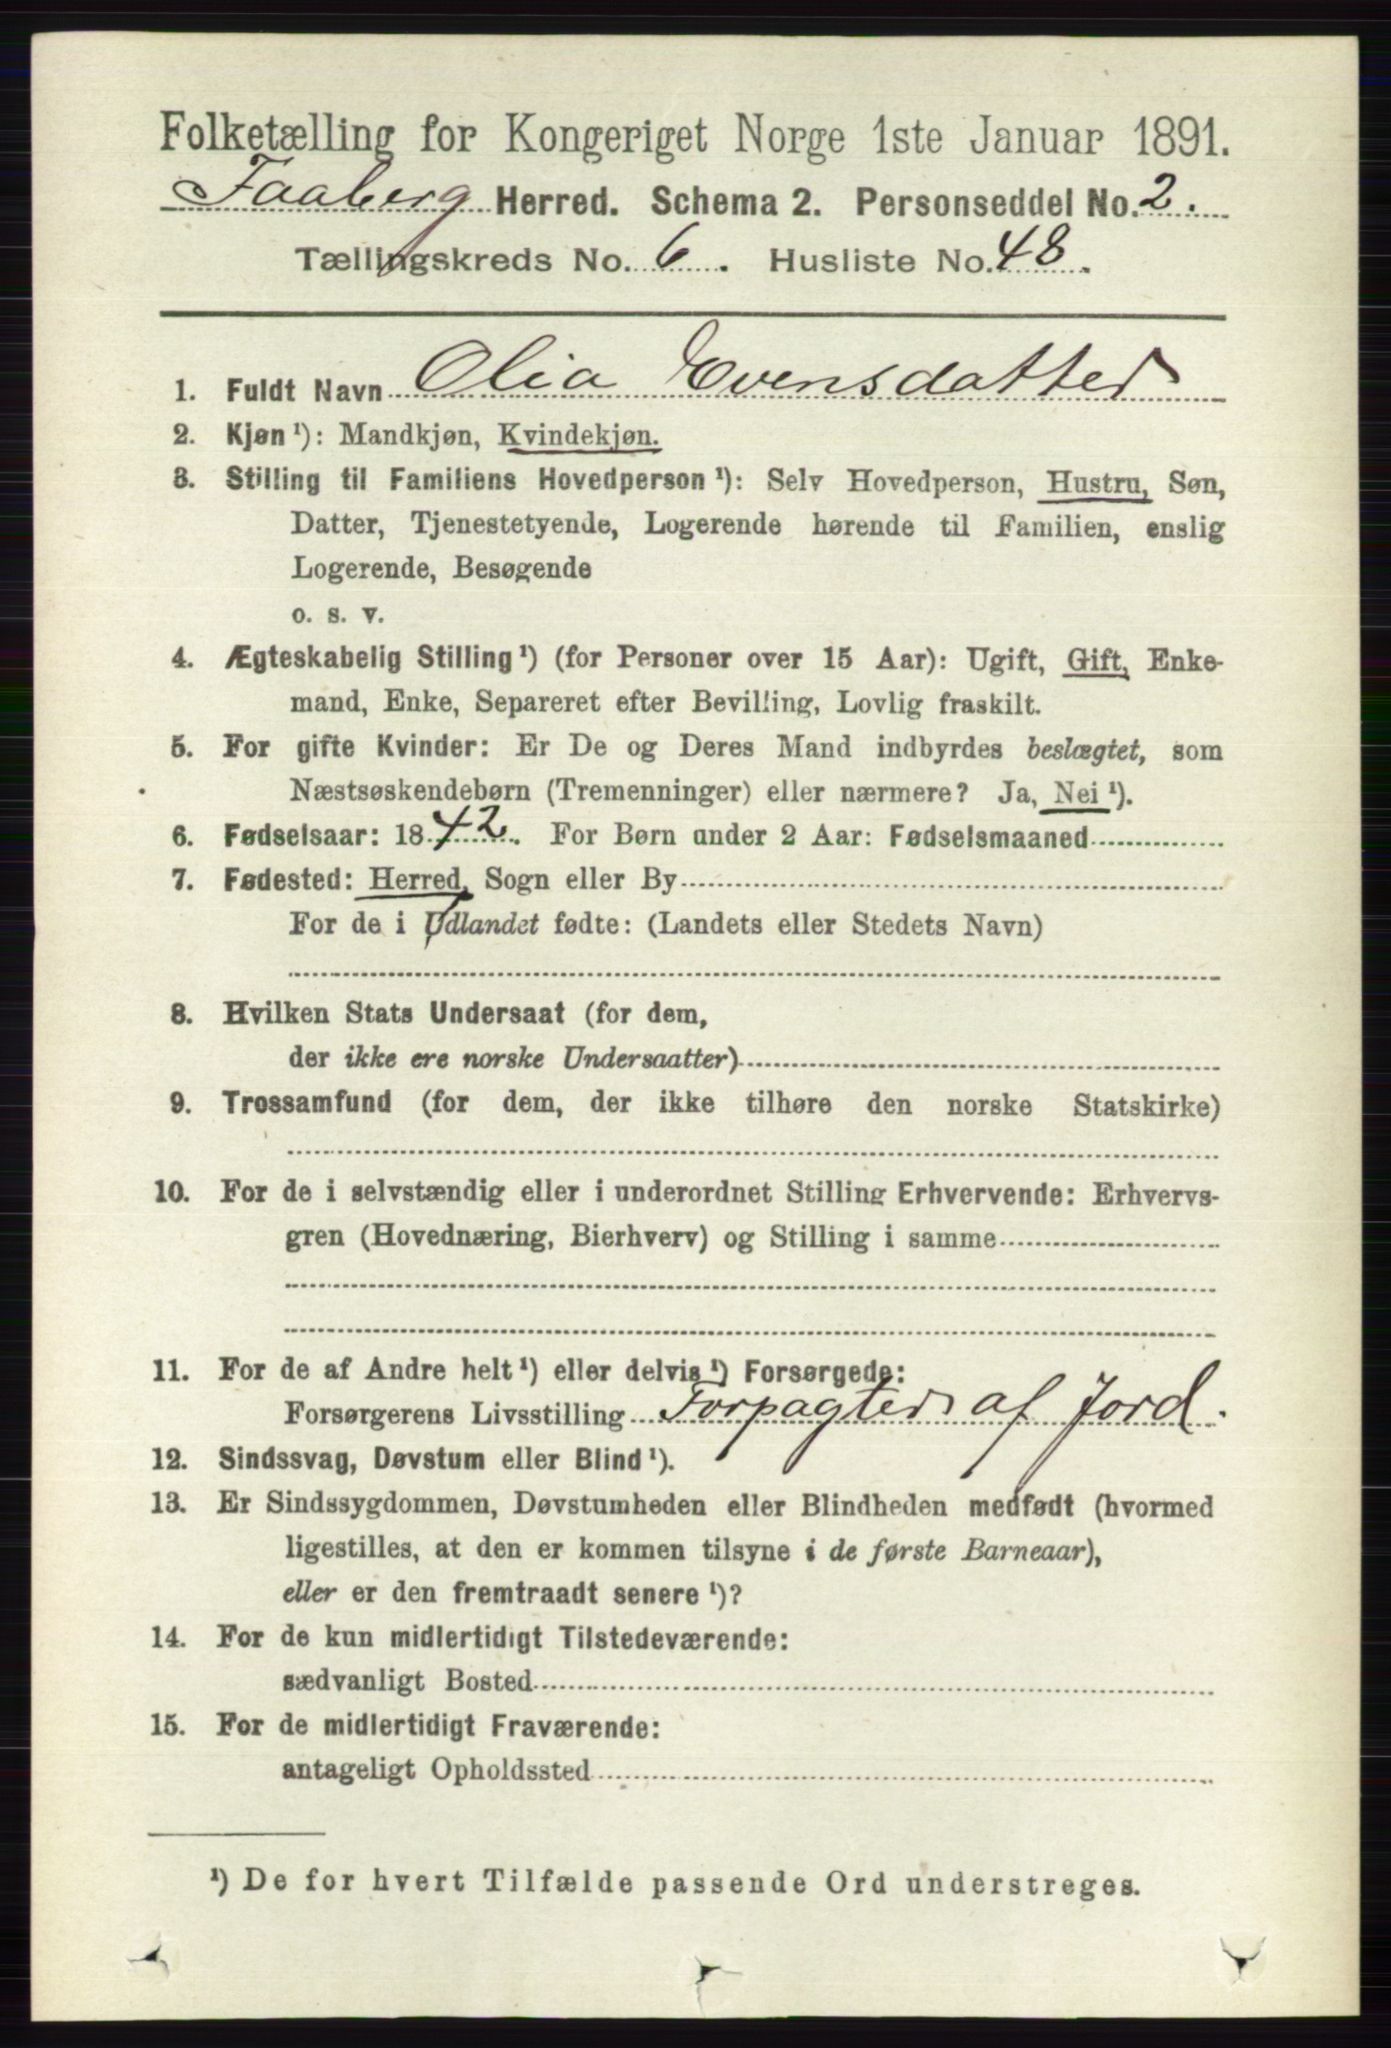 Folketælling for Kongeriget Norge 1ste Januar 1891.
Faaberg Herred. Schema 2. Personseddel No. 2.
Tællingskreds No. 6. Husliste No. 48.
1. Fuldt Navn Olia Evensdatter
2. Kjøn ¹): Mandkjøn, Kvindekjøn.
3. Stilling til Familiens Hovedperson ¹): Selv Hovedperson, Hustru, Søn,
Datter, Tjenestetyende, Logerende hørende til Familien, enslig
Logerende, Besøgende
o. s. v.
4. Ægteskabelig Stilling ¹) (for Personer over 15 Aar): Ugift, Gift, Enke-
mand, Enke, Separeret efter Bevilling, Lovlig fraskilt.
5. For gifte Kvinder: Er De og Deres Mand indbyrdes beslægtet, som
Næstsøskendebørn (Tremenninger) eller nærmere? Ja, Nei ¹).
6. Fødselsaar: 1842. For Børn under 2 Aar: Fødselsmaaned
7. Fødested: Herred, Sogn eller By
For de i Udlandet fødte: (Landets eller Stedets Navn)
8. Hvilken Stats Undersaat (for dem,
der ikke ere norske Undersaatter)
9. Trossamfund (for dem, der ikke tilhøre den norske Statskirke)
10. For de i selvstændig eller i underordnet Stilling Erhvervende: Erhvervs-
gren (Hovednæring, Bierhverv) og Stilling i samme
11. For de af Andre helt ¹) eller delvis ¹) Forsørgede:
Forsørgerens Livsstilling Forpagter af Jord.
12. Sindssvag, Døvstum eller Blind ¹).
13. Er Sindssygdommen, Døvstumheden eller Blindheden medfødt (hvormed
ligestilles, at den er kommen tilsyne i de første Barneaar),
eller er den fremtraadt senere ¹)?
14. For de kun midlertidigt Tilstedeværende:
sædvanligt Bosted
15. For de midlertidigt Fraværende:
antageligt Opholdssted
¹) De for hvert Tilfælde passende Ord understreges.